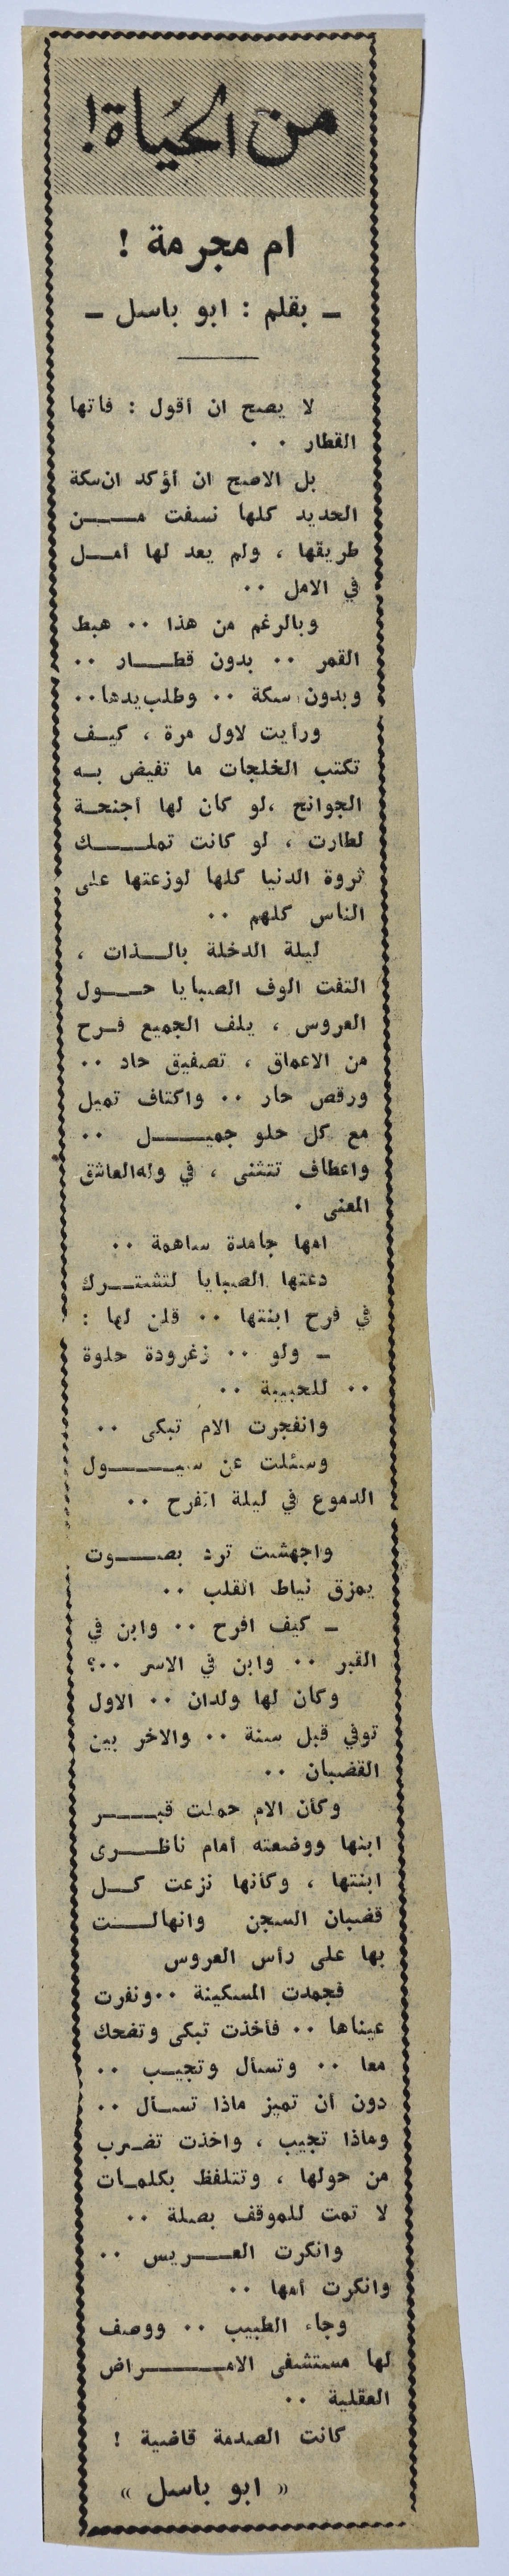 من الحياة!
ام مجرمة !
ـ بقلم : ابو باسل ـ
لا يصح ان أقول : فاتها
القطار ٠ ٠
بل الاصح ان أؤكد ان سكة
الحديد كلها نسفت مــــن
طريقها ، ولم يعد لها أمــل
في الامل ٠٠
وبالرغم من هذا ٠٠ هبط
القمر ٠٠ بدون قطــــار ٠٠
وبدون سكة ٠٠ وطلب يدها٠٠
ورأيت لاول مرة ، كيــف
تكتب الخلجات ما تفيض بــه
الجوانح ،لو كان لها أجنحــة
لطارت ، لو كانت تملــــك
ثروة الدنيا كلها لوزعتها على
الناس كلهم ٠٠
ليلة الدخلة بالـــذات ،
التفت الوف الصبايا حــــول
العروس ، يلف الجميع فــرح
من الاعماق ، تصفيق حاد ٠٠
ورقص حار ٠٠ واكتاف تميل
مع كل حلو جميــــــل ٠٠
واعطاف تتثنى ، في وله العاشق
المعنى ٠
امها جامدة ساهمة ٠٠
دعتها الصبايا لتشتــــرك
في فرح ابنتها ٠٠ قلن لها :
ـ ولو ٠٠ زغرودة حلوة
٠٠ للحبيبة ٠٠
وانفجرت الام تبكى ٠٠
وسئلت عن سيــــــول
الدموع في ليلة الفرح ٠٠
واجهشت ترد بصــــوت
يمزق نياط القلب ٠٠
ـ كيف افرح ٠٠ وابن في
القبر ٠٠ وابن في الاسر ٠٠؟
وكان لها ولدان ٠٠ الاول
توفي قبل سنة ٠٠ والاخر بين
القضبان ٠٠
وكأن الام حملت قبــــر
ابنها ووضعته أمام ناظــــرى
ابنتها ، وكأنها نزعت كـــل
قضبان السجن وانهالـــت
بها على رأس العروس
فجمدت المسكينة ٠٠ونفرت
عيناها ٠٠ فأخذت تبكى وتضحك
معا ٠٠ وتسأل وتجيــب ٠٠
دون أن تميز ماذا تســأل ٠٠
وماذا تجيب ، واخذت تضرب
من حولها ، وتتلفظ بكلمــات
لا تمت للموقف بصلة ٠٠
وانكرت العــــريس ٠٠
وانكرت أمها ٠٠
وجاء الطبيب ٠٠ ووصف
لها مستشفى الامــــــراض
العقلية ٠٠
كانت الصدمة قاضية !
« ابو باسل »